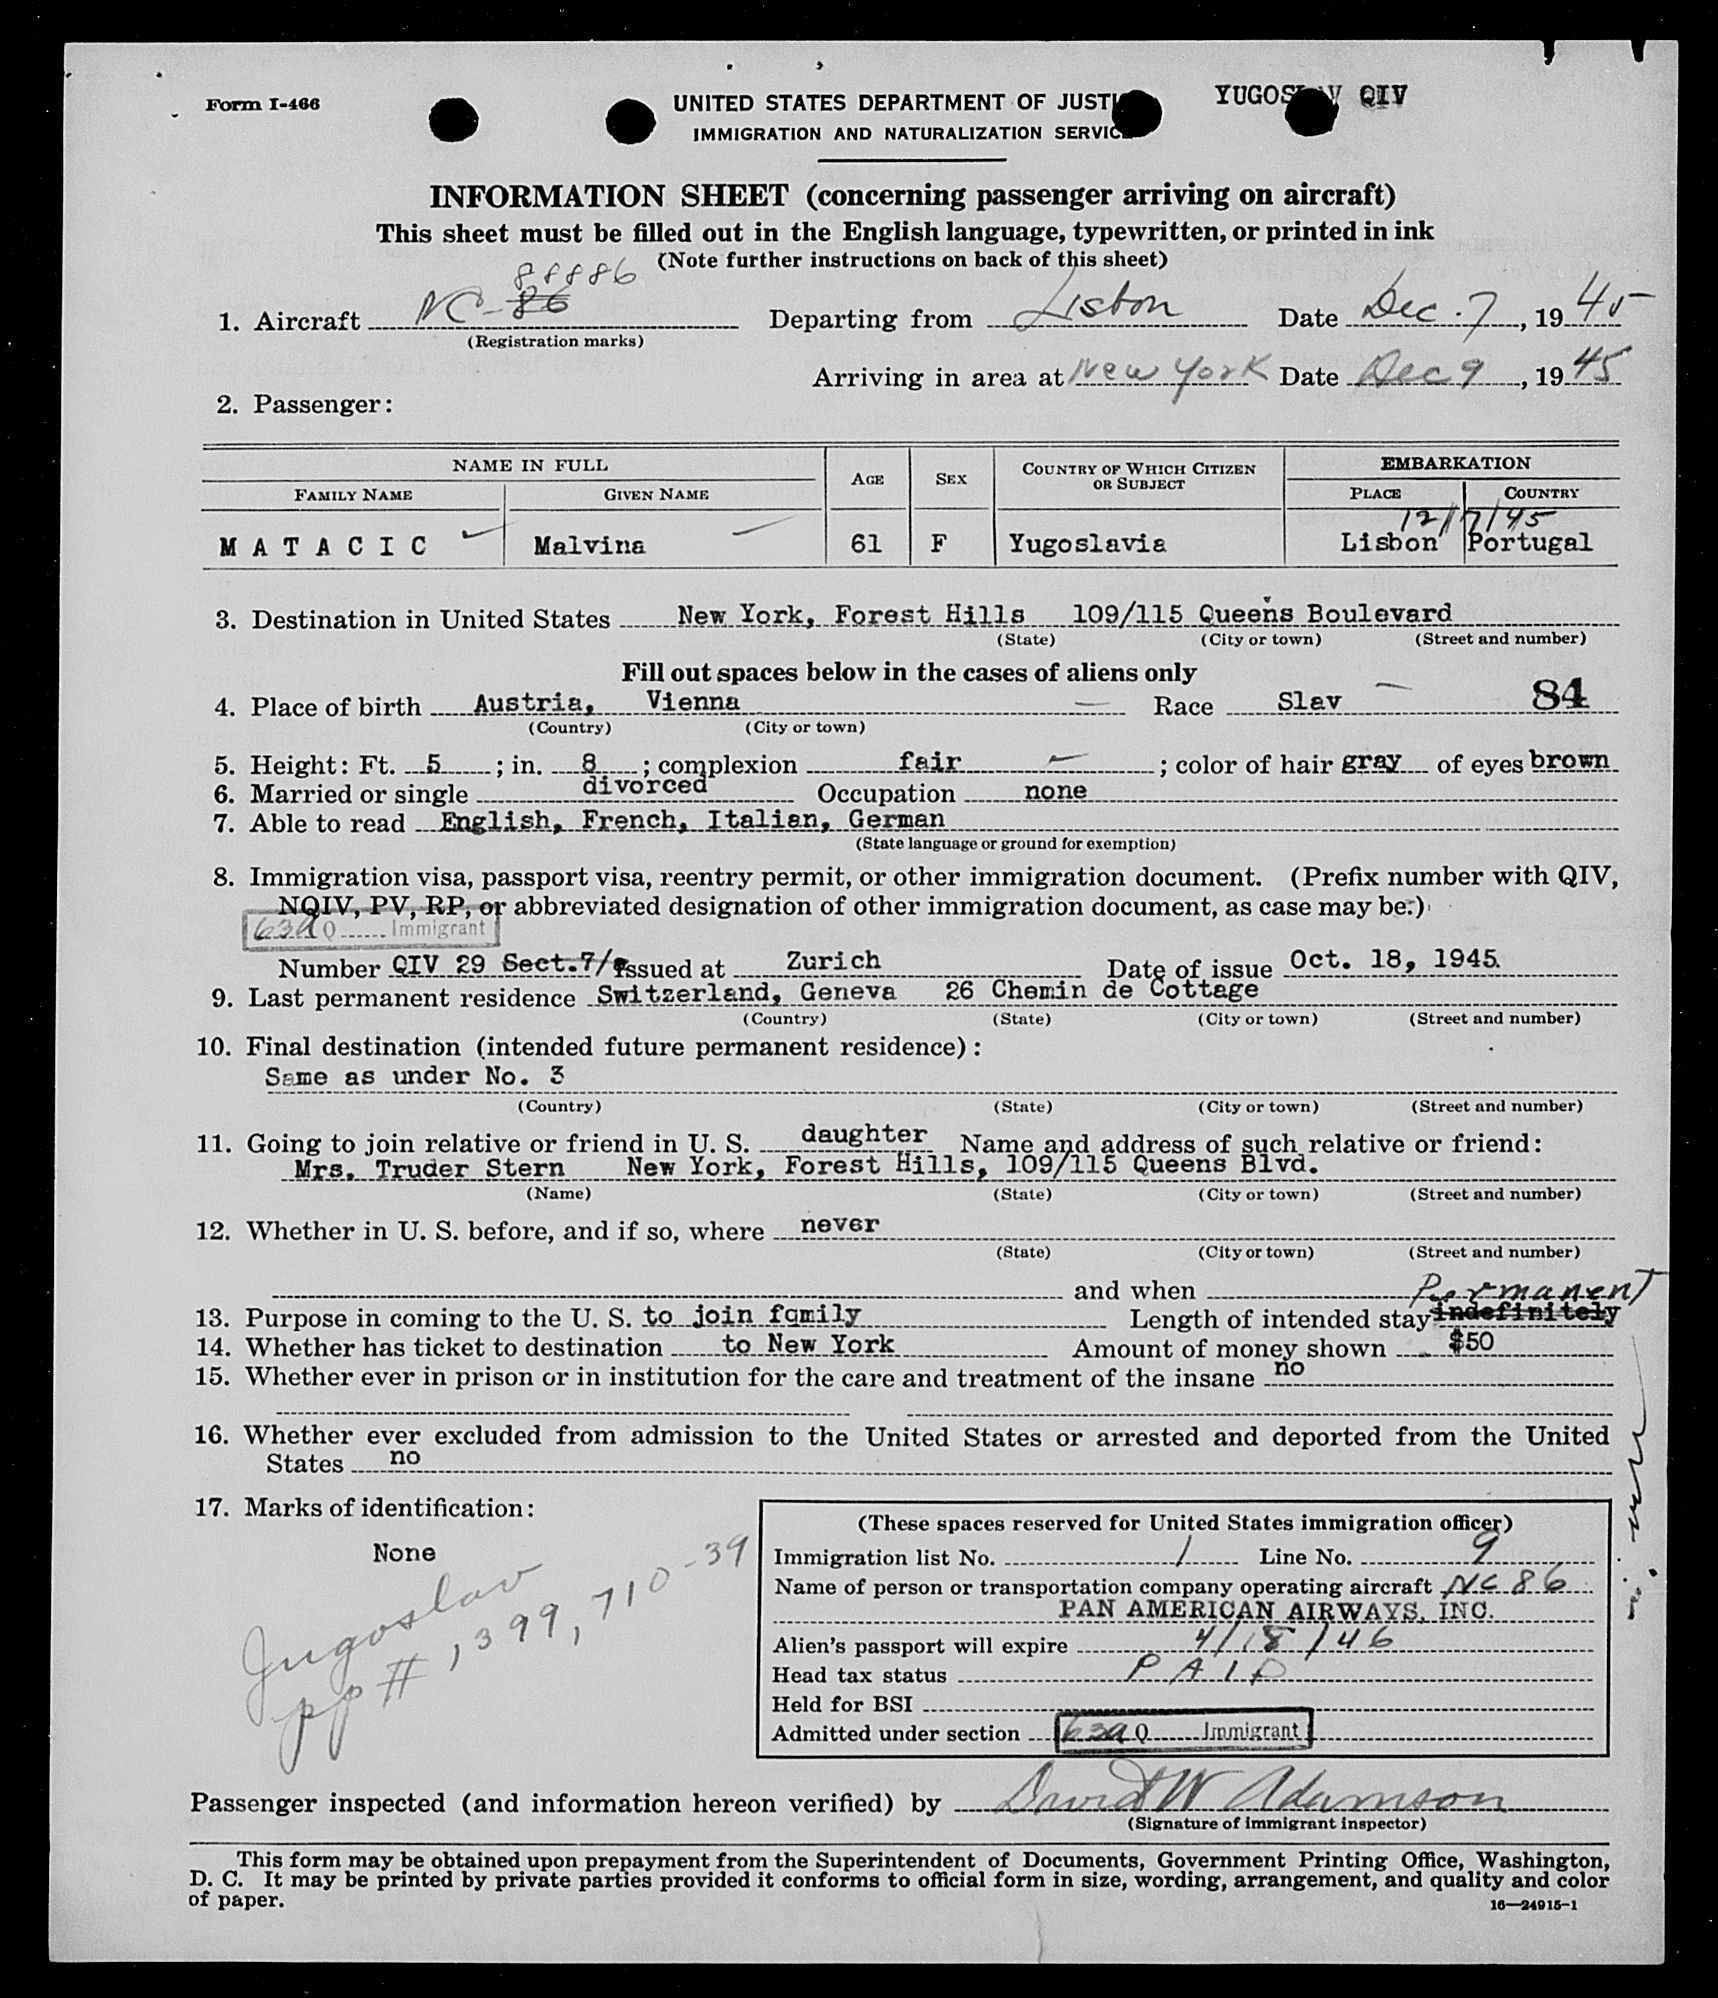 Form I-466
UNITED STATES DEPARTMENT OF JUSTI
IMMIGRATION AND NATURALIZATION SERVIC
YUGOSLAV QIV
INFORMATION SHEET (concerning passenger arriving on aircraft)
This sheet must be filled out in the English language, typewritten, or printed in ink
(Note further instructions on back of this sheet)
88886
1. Aircraft NC-86 Departing from Lisbon Date Dec. 7, 1945
(Registration marks)
Arriving in area at New York Date Dec 9, 1945
2. Passenger:
NAME IN FULL AGE SEX COUNTRY OF WHICH CITIZEN OR SUBJECT EMBARKATION
FAMILY NAME GIVEN NAME PLACE COUNTRY
12/7/45
MATACIC Malvina 61 F Yugoslavia Lisbon Portugal
3. Destination in United States New York, Forest Hills 109/115 Queens Boulevard
(State) (City or town) (Street and number)
Fill out spaces below in the cases of aliens only
4. Place of birth Austria, Vienna Race Slav 84
(Country) (City or town)
5. Height: Ft. 5; in. 8; complexion fair; color of hair gray of eyes brown
6. Married or single divorced Occupation none
7. Able to read English, French, Italian, German
(State language or ground for exemption)
8. Immigration visa, passport visa, reentry permit, or other immigration document. (Prefix number with QIV,
NQIV, PV, RP, or abbreviated designation of other immigration document, as case may be.)
63a Q Immigrant
Number QIV 29 Sect.7/ Issued at Zurich Date of issue Oct. 18, 1945.
9. Last permanent residence Switzerland, Geneva 26 Chemin de Cottage
(Country) (State) (City or town) (Street and number)
10. Final destination (intended future permanent residence):
Same as under No. 3
(Country) (State) (City or town) (Street and number)
11. Going to join relative or friend in U. S. daughter Name and address of such relative or friend:
Mrs. Truder Stern New York, Forest Hills, 109/115 Queens Blvd.
(Name) (State) (City or town) (Street and number)
12. Whether in U. S. before, and if so, where never
(State) (City or town) (Street and number)
and when
Permanent
13. Purpose in coming to the U. S. to join family Length of intended stay indefinitely
14. Whether has ticket to destination to New York Amount of money shown $50
15. Whether ever in prison or in institution for the care and treatment of the insane no
16. Whether ever excluded from admission to the United States or arrested and deported from the United
States no
17. Marks of identification:
None
Jugoslav
pp # 1399,710-39
(These spaces reserved for United States immigration officer)
Immigration list No. 1 Line No. 9
Name of person or transportation company operating aircraft NC 86
PAN AMERICAN AIRWAYS, INC.
Alien's passport will expire 4/18/46
Head tax status PAID
Held for BSI
Admitted under section 63a Q Immigrant
Passenger inspected (and information hereon verified) by David W Adamson
(Signature of immigrant inspector)
This form may be obtained upon prepayment from the Superintendent of Documents, Government Printing Office, Washington,
D. C. It may be printed by private parties provided it conforms to official form in size, wording, arrangement, and quality and color
of paper.
16—24915-1